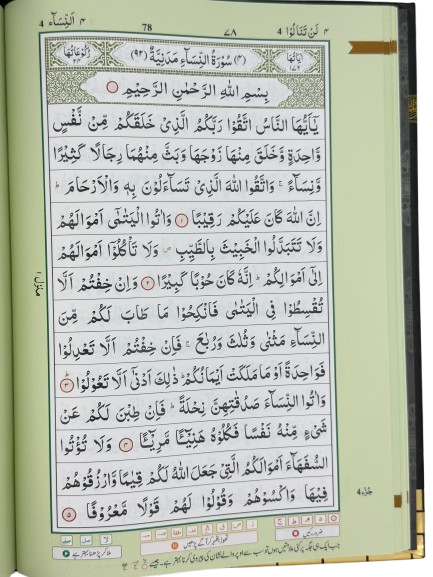 ٤ اَلنِّسَآء 4 78 ٧٨ ٤ لَنْ تَنَالُوا 4
اٰيَاتُهَا ١٧٦ (٤) سُوْرَةُ النِّسَآءِ مَدَنِيَّةٌ (٩٢) رُكُوْعَاتُهَا ٢٤
بِسْمِ اللهِ الرَّحْمٰنِ الرَّحِيْمِ
يٰۤاَيُّهَا النَّاسُ اتَّقُوْا رَبَّكُمُ الَّذِيْ خَلَقَكُمْ مِّنْ نَّفْسٍ
وَّاحِدَةٍ وَّخَلَقَ مِنْهَا زَوْجَهَا وَبَثَّ مِنْهُمَا رِجَالًا كَثِيْرًا
وَّنِسَآءً ۚ وَاتَّقُوا اللهَ الَّذِيْ تَسَآءَلُوْنَ بِهٖ وَالْاَرْحَامَ ؕ
اِنَّ اللهَ كَانَ عَلَيْكُمْ رَقِيْبًا ١ وَاٰتُوا الْيَتٰمٰۤى اَمْوَالَهُمْ
وَلَا تَتَبَدَّلُوا الْخَبِيْثَ بِالطَّيِّبِ ۪ وَلَا تَاْكُلُوْۤا اَمْوَالَهُمْ
اِلٰۤى اَمْوَالِكُمْ ؕ اِنَّهٗ كَانَ حُوْبًا كَبِيْرًا ٢ وَاِنْ خِفْتُمْ اَلَّا
تُقْسِطُوْا فِي الْيَتٰمٰى فَانْكِحُوْا مَا طَابَ لَكُمْ مِّنَ
النِّسَآءِ مَثْنٰى وَثُلٰثَ وَرُبٰعَ ۚ فَاِنْ خِفْتُمْ اَلَّا تَعْدِلُوْا
فَوَاحِدَةً اَوْ مَا مَلَكَتْ اَيْمَانُكُمْ ؕ ذٰلِكَ اَدْنٰۤى اَلَّا تَعُوْلُوْا ٣
وَاٰتُوا النِّسَآءَ صَدُقٰتِهِنَّ نِحْلَةً ؕ فَاِنْ طِبْنَ لَكُمْ عَنْ
شَيْءٍ مِّنْهُ نَفْسًا فَكُلُوْهُ هَنِيْٓـًٔا مَّرِيْٓـًٔا ٤ وَلَا تُؤْتُوا
السُّفَهَآءَ اَمْوَالَكُمُ الَّتِيْ جَعَلَ اللهُ لَكُمْ قِيٰمًا وَّارْزُقُوْهُمْ
فِيْهَا وَاكْسُوْهُمْ وَقُوْلُوْا لَهُمْ قَوْلًا مَّعْرُوْفًا ٥
منزل ١
4